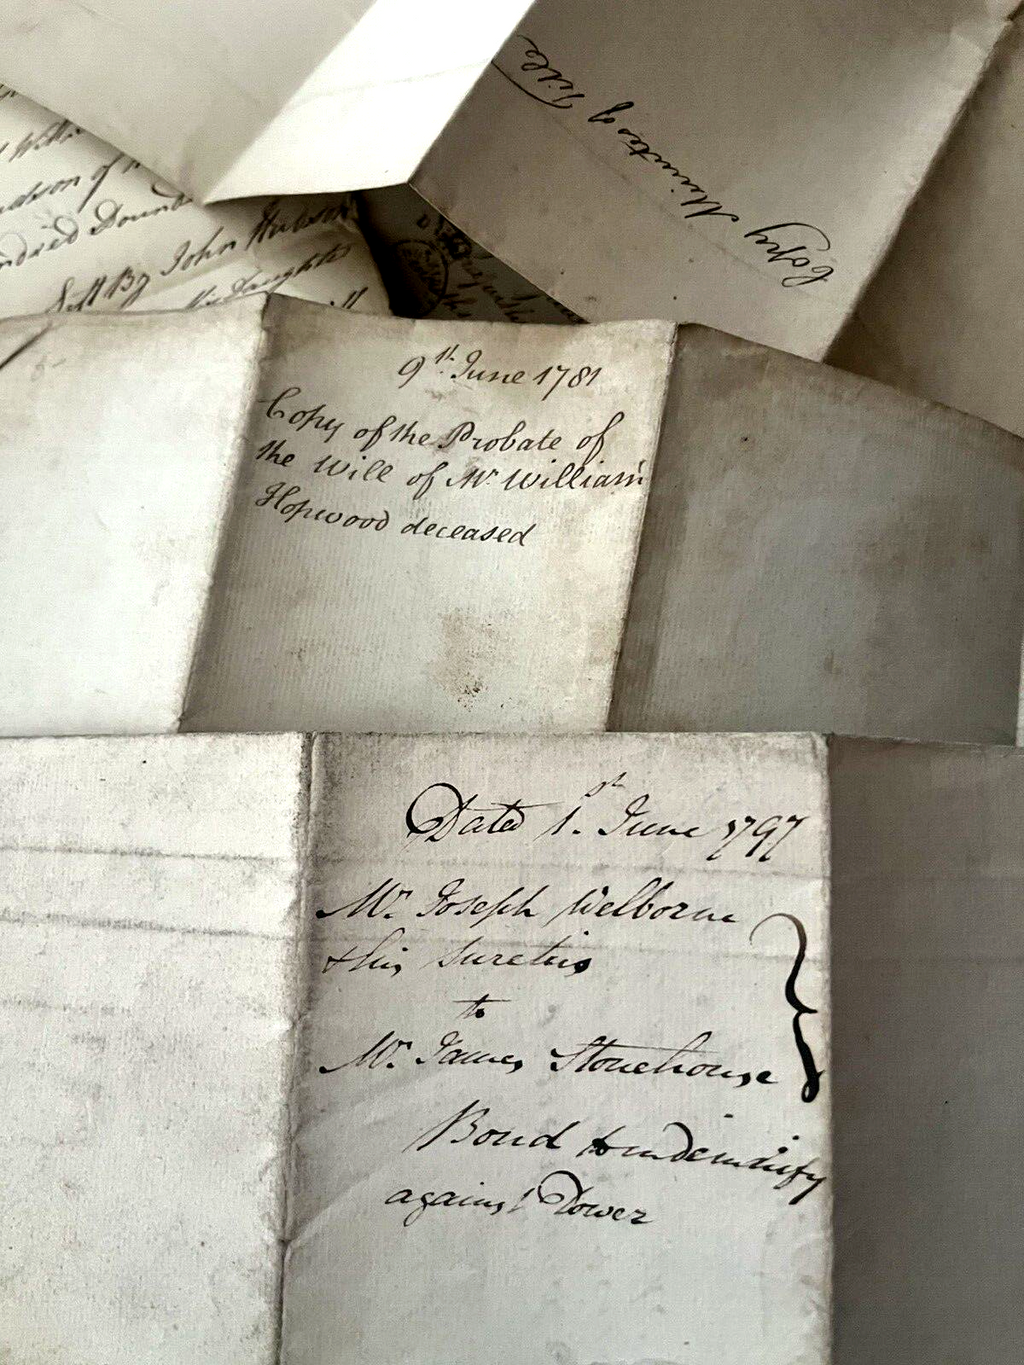 Copy Minutes of Title
hundred Pounds
Left By John Hudson
9th. June 1781
Copy of the Probate of
the Will of Mr William
Hopwood deceased
Dated 1st. June 1797
Mr. Joseph Welborne
& his Sureties
to
Mr. James Stonehouse
Bond to indemnify
against Dower